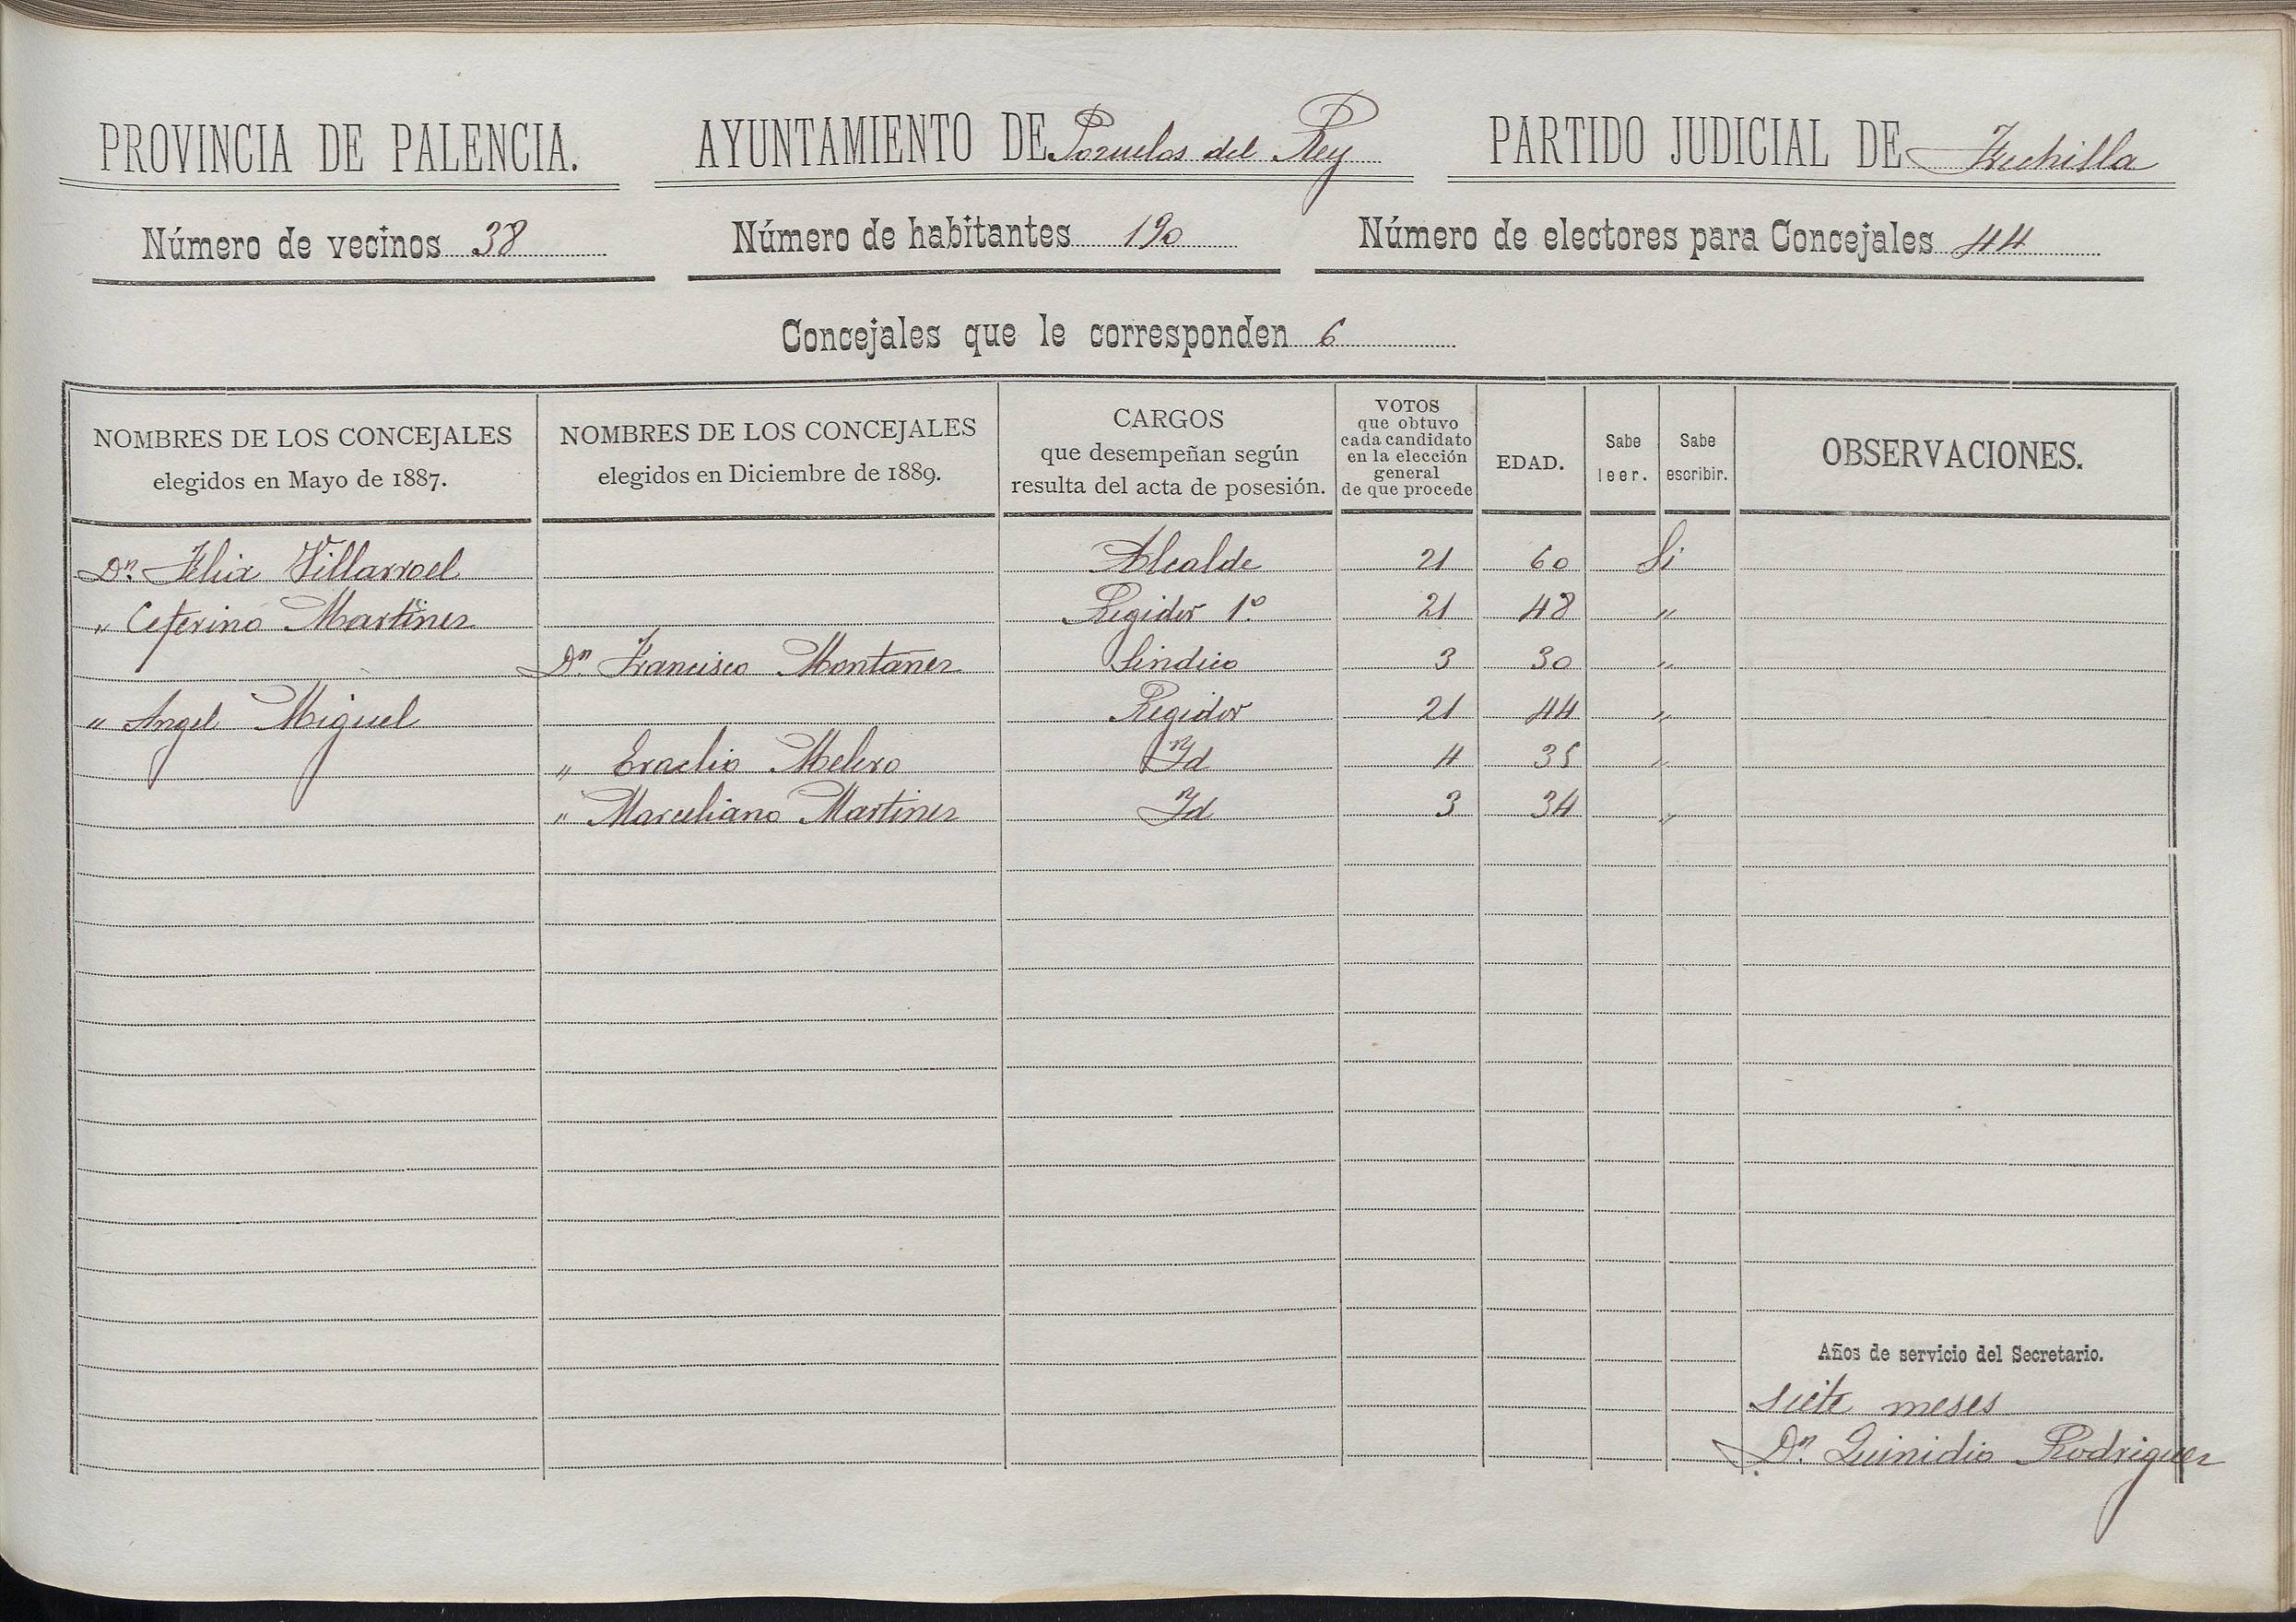 PROVINCIA DE PALENCIA. AYUNTAMIENTO DE Pozuelos del Rey PARTIDO JUDICIAL DE Frechilla
Número de vecinos 38 Número de habitantes 190 Número de electores para Concejales 44
Concejales que le corresponden 6
NOMBRES DE LOS CONCEJALES elegidos en Mayo de 1887. NOMBRES DE LOS CONCEJALES elegidos en Diciembre de 1889. CARGOS que desempeñan según resulta del acta de posesión. VOTOS que obtuvo cada candidato en la elección general de que procede EDAD. Sabe leer. Sabe escribir. OBSERVACIONES.
Dn. Felix Villarroel Alcalde 21 60 Si
" Ceferino Martinez Regidor 1º 21 48 "
Dn Francisco Montañez Sindico 3 30 "
" Angel Miguel Regidor 21 44 "
" Eraclio Melero Id 4 35 "
" Marceliano Martinez Id 3 34 "
Años de servicio del Secretario.
siete meses
Dn. Quinidio Rodriguez